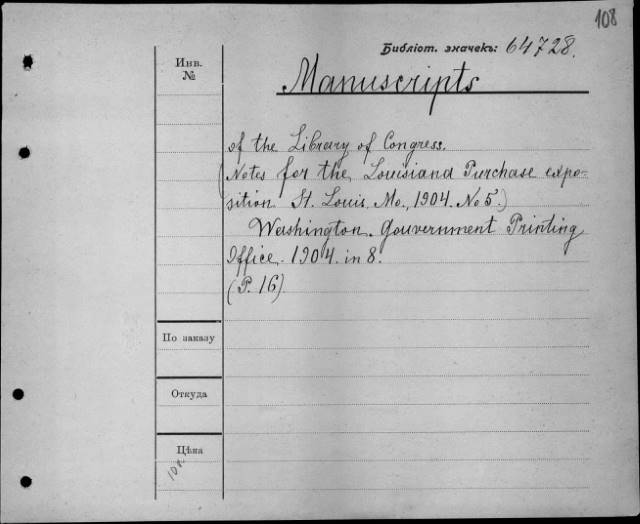 108
Библіот. значекъ: 64728.
Инв.
№
Manuscripts
of the Library of Congress.
(Notes for the Louisiana Purchase expo-
sition St. Louis, Mo., 1904. No 5.)
Washington. Gouvernment Printing
Office. 1904. in 8.
(P. 16)
По заказу
Откуда
Цѣна